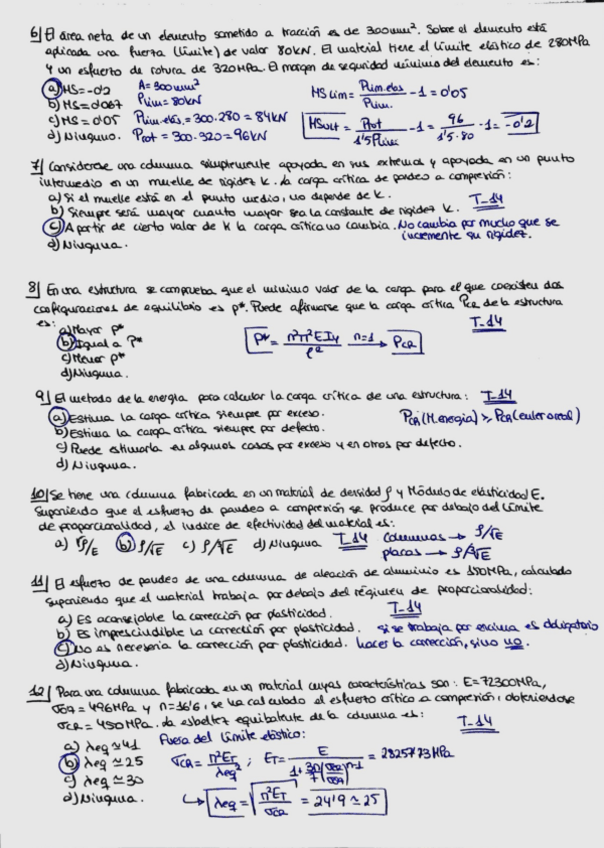 6] El área neta de un elemento sometido a tracción es de 300mm². Sobre el elemento está
aplicada una fuerza (límite) de valor 80KN. El material tiere el límite elástico de 280MPa
y un esfuerzo de rotura de 320MPa. El margen de seguridad mínimo del elemento es:
a) MS=-0'2 A=300mm² MSlim = Plim.elás/Plim. -1 = 0'05
b) MS=0'067 Plim=80KN
c) MS=0'05 Plim.elás.=300·280=84KN MSult = Prot/1'5Plim -1 = 96/1'5·80 -1 = -0'2
d) Ninguno. Prot = 300·320=96KN
7] Considerese una columna simplemente apoyada en sus extremos y apoyada en un punto
intermedio en un muelle de rigidez K. La carga crítica de pandeo a compresión:
a) Si el muelle está en el punto medio, no depende de K.
b) Siempre será mayor cuanto mayor sea la constante de rigidez K. T-14
c) A partir de cierto valor de K la carga crítica no cambia. No cambia por mucho que se
d) Ninguna. incremente su rigidez.
8] En una estructura se comprueba que el mínimo valor de la carga para el que coexisten dos
configuraciones de equilibrio es P*. Puede afirmarse que la carga crítica PCR de la estructura
es: T-14
a) Mayor P*
b) Igual a P* P* = n²π²EIy/l² n=1 → PCR
c) Menor P*
d) Ninguna.
9] El metodo de la energía para calcular la carga crítica de una estructura: T-14
a) Estima la carga crítica siempre por exceso. PCR (M.energia) ≥ PCR (euler o real)
b) Estima la carga crítica siempre por defecto.
c) Puede estimarla en algunos casos por exceso y en otros por defecto.
d) Ninguna.
10] Se tiene una columna fabricada en un material de densidad ρ y Módulo de elasticidad E.
Suponiendo que el esfuerzo de pandeo a compresión se produce por debajo del límite
de proporcionalidad, el indice de efectividad del material es:
a) √ρ/E b) ρ/√E c) ρ/∛E d) Ninguna T-14 columnas → ρ/√E
placas → ρ/∛E
11] El esfuerzo de pandeo de una columna de aleación de aluminio es 150MPa, calculado
suponiendo que el material trabaja por debajo del régimen de proporcionalidad:
a) Es aconsejable la corrección por plasticidad. T-14
b) Es imprescindible la corrección por plasticidad. si se trabaja por encima es obligatorio
c) No es necesaria la corrección por plasticidad. hacer la corrección, sino no.
d) Ninguna.
12] Para una columna fabricada en un material cuyas características son: E=72300MPa,
σ0'7 = 496MPa y n=16'6, se ha calculado el esfuerzo crítico a compresión, obteniendose
σCR = 450MPa. La esbeltez equibalente de la columna es: T-14
a) λeq ≃ 41 Fuera del límite elástico:
b) λeq ≃ 25 σCR = π²ET/λeq² ; ET = E/1+3n/7(σCR/σ0'7)n-1 = 28257'73MPa
c) λeq ≃ 30
d) Ninguna. ↳ λeq = √π²ET/σCR = 24'9 ≃ 25